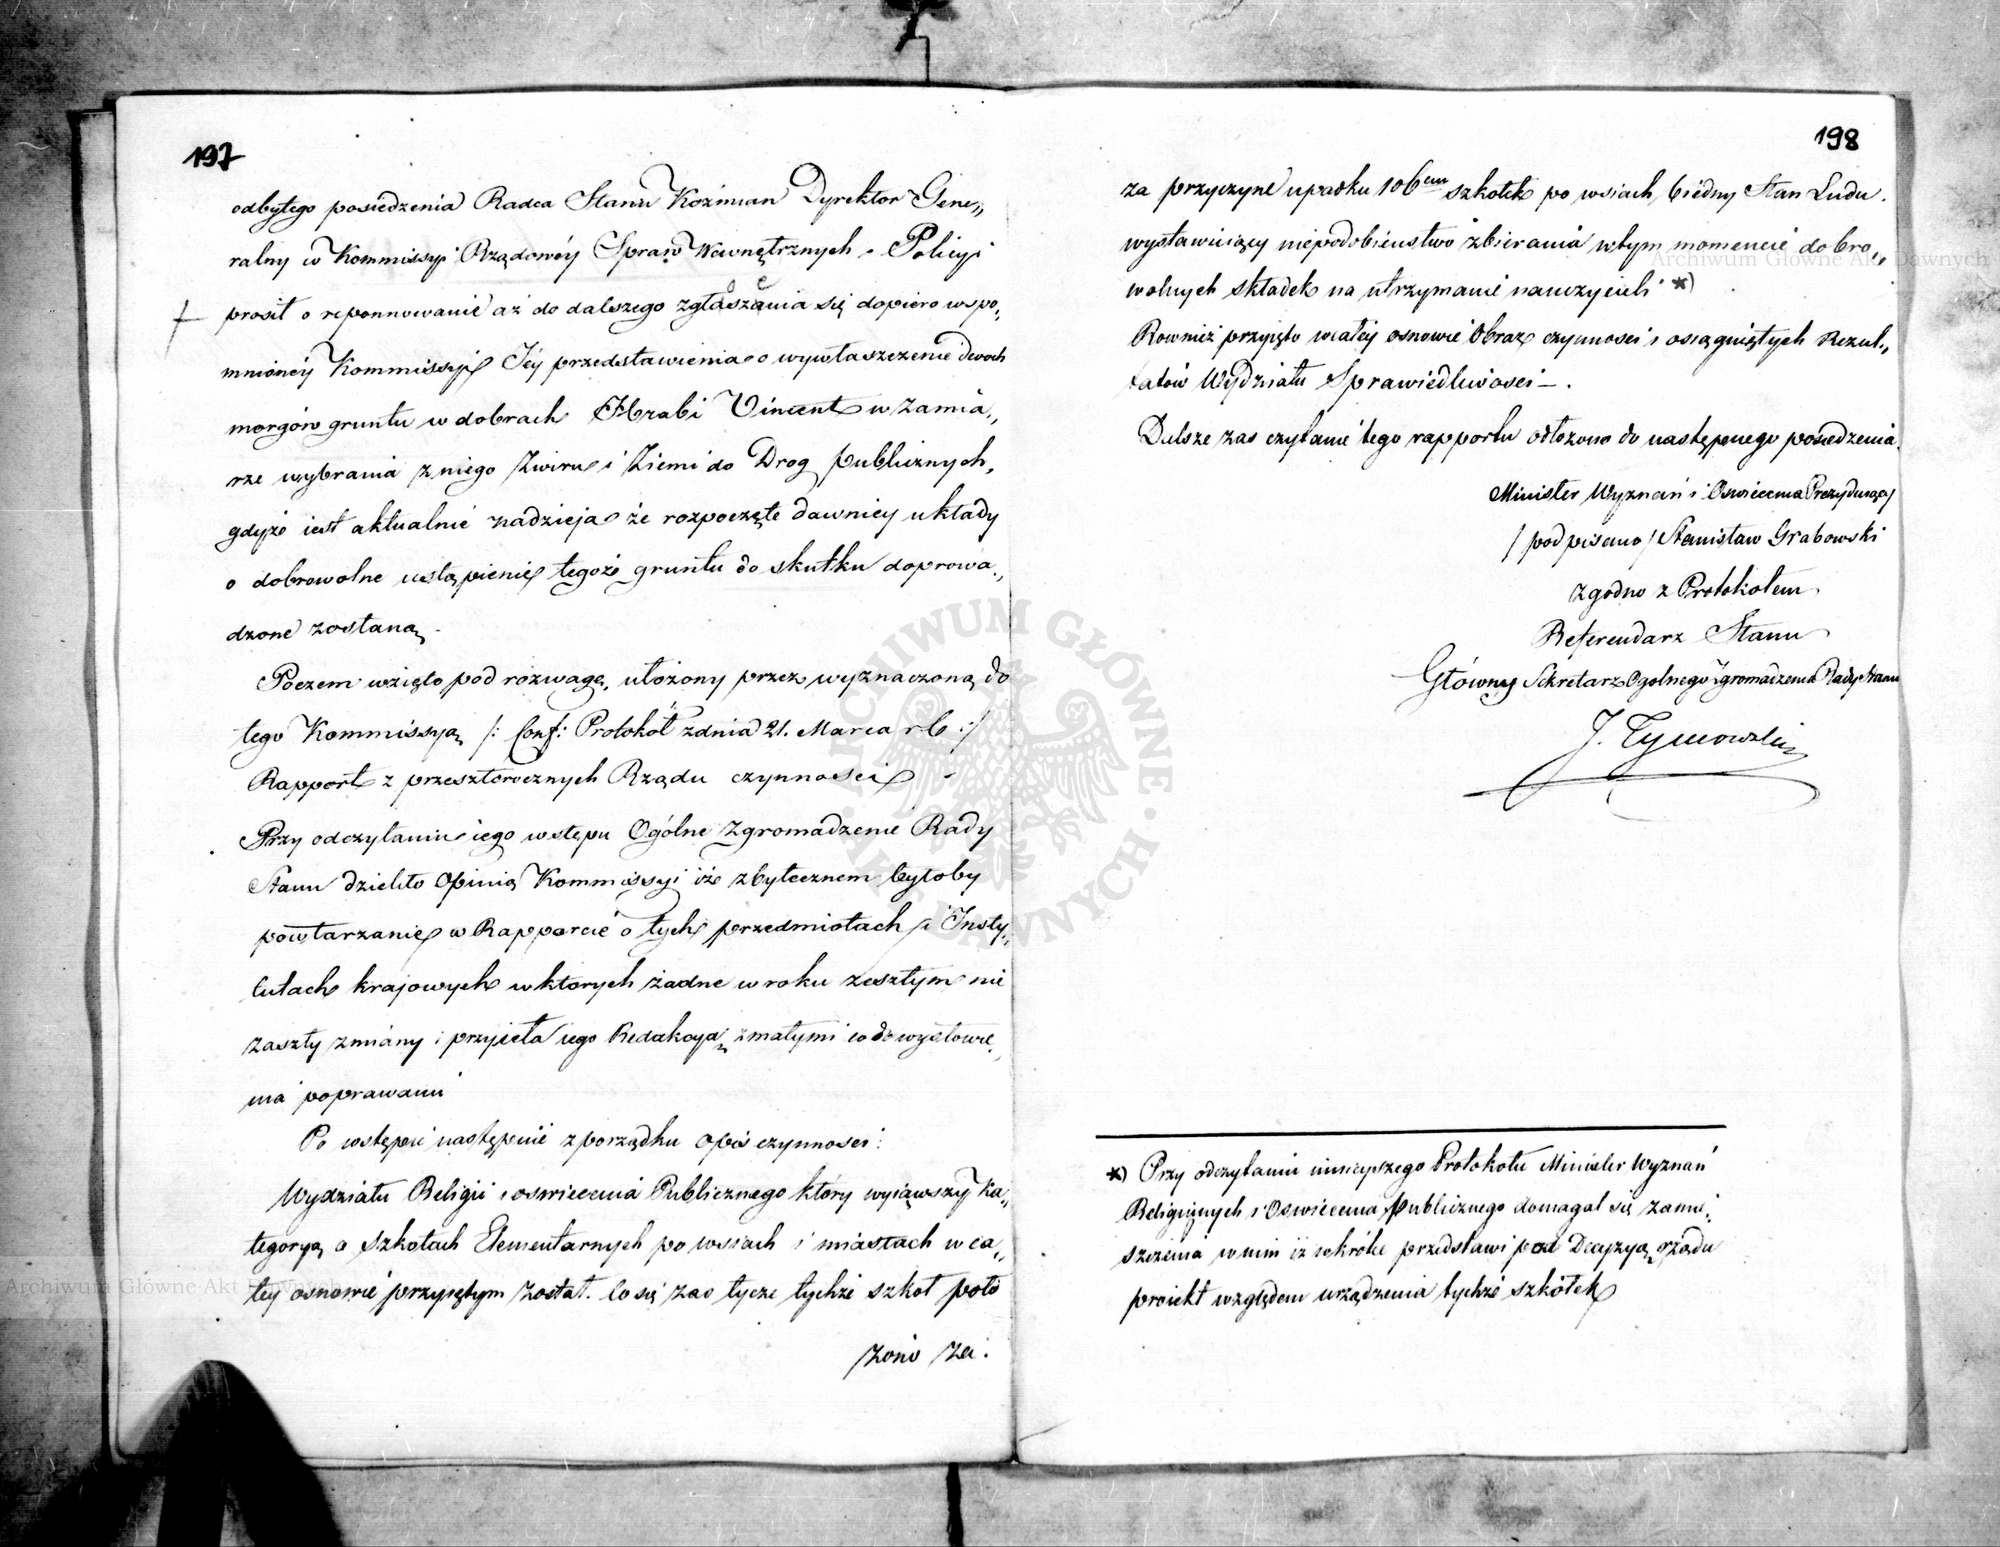 197
odbytego posiedzenia Radca Stanu Koźmian Dyrektor Gene„
ralny w Kommissyi Rządowéy Spraw Wewnętrznych i Policyi
prosił o reponnowanie aż do dalszego zgłaszania się dopiero wspo„
mnionéy Kommissyi Jéy przedstawienia o wywłaszczenie dwoch
morgów gruntu w dobrach Hrabi Vincent w zamia„
rze wybrania z niego żwiru i ziemi do Drog publicznych,
gdyż iest aktualnie nadzieja że rozpoczęte dawniey układy
o dobrowolne ustąpienie tegoż gruntu do skutku doprowa„
dzone zostaną.
Poczem wzięto pod rozwagę, ułożony przez wyznaczoną do
tego Kommissyą /: Conf: Protokół z dnia 21. Marca r b :/
Rapport z przeszłorocznych Rządu czynności -
Przy odczytaniu iego wstępu Ogólne Zgromadzenie Rady
Stanu dzieliło Opinią Kommissyi iż zbytecznem byłoby
powtarzanie w Rapporcie o tych przedmiotach i Insty„
tutach krajowych w ktorych żadne w roku zeszłym nie
zaszły zmiany i przyięła iego Redakcyą z małymi co do wysłowie„
nia poprawami
Po wstępie następnie z porządku opis czynności:
Wydziału Religii i oswiecenia Publicznego ktory wyiąwszy Ka„
tegoryą o szkołach Elementarnych po wsiach i miastach w ca„
łey osnowie przyiętym został. Co się zas tycze tychże szkoł poło
żono za.
198
za przyczynę upadku 106ciu szkołek po wsiach biedny Stan Ludu.
wystawuiący niepodobieństwo zbierania w tym momencie dobro„
wolnych składek na utrzymanie nauczycieli *)
Rownież przyięto w całey osnowie Obraz czynnosci i osiągniętych Rezul„
tatów Wydziału Sprawiedliwosci –.
Dalsze zas czytanie tego rapportu odłożono do następnego posiedzenia.
Minister Wyznań i Oswiecenia Prezyduiący
/ podpisano / Stanisław Grabowski
Zgodno z Protokołem
Referendarz Stanu
Główny Sekretarz Ogolnego Zgromadzenia Rady Stanu
J. Tymowski
*) Przy odczytaniu ninieyszego Protokołu Minister Wyznań
Religiynych i Oswiecenia Publicznego domagał się zamie„
szczenia w nim iż wkrótce przedstawi pod Decyzyą rządu
proiekt względem urządzenia tychże szkółek
Archiwum Główne Akt Dawnych
ARCHIWUM GŁÓWNE AKT DAWNYCH
Archiwum Główne Akt Dawnych